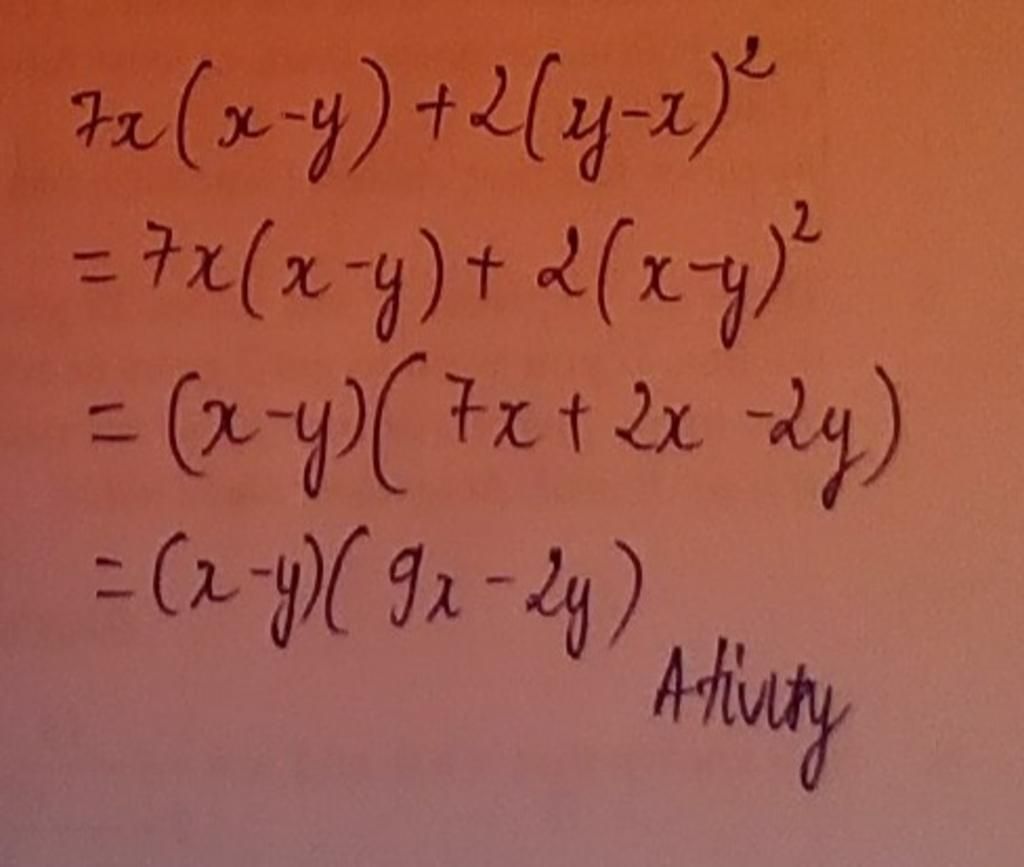 7x(x-y)+2(y-x)²
=7x(x-y)+2(x-y)²
=(x-y)(7x+2x-2y)
=(x-y)(9x-2y)
Ativity